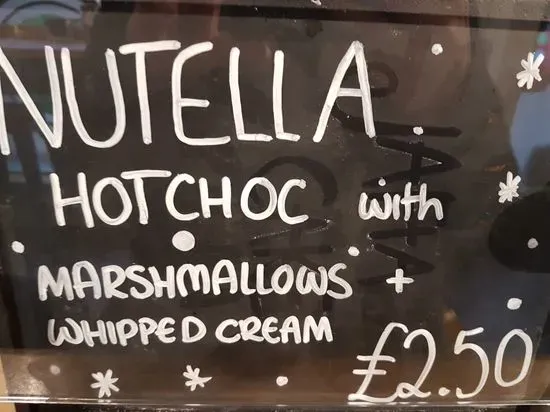 NUTELLA
HOTCHOC with
MARSHMALLOWS +
WHIPPED CREAM
£2.50